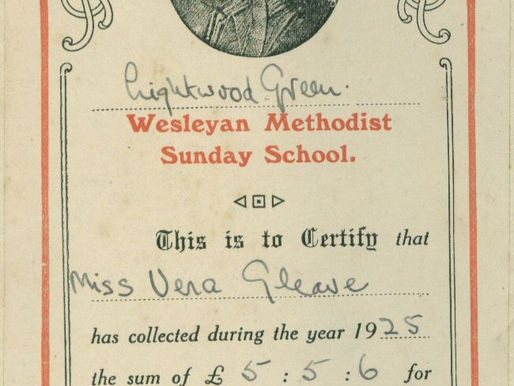 Lightwood Green.
Wesleyan Methodist
Sunday School.
This is to Certify that
Miss Vera Gleave
has collected during the year 1925
the sum of £ 5 : 5 : 6 for